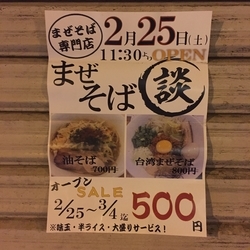 まぜそば
専門店
2月25日(土)
11:30から OPEN
まぜ
そば
談
油そば
700円
台湾まぜそば
800円
オープン
SALE
2/25～3/4迄
500円
※味玉・半ライス・大盛りサービス!